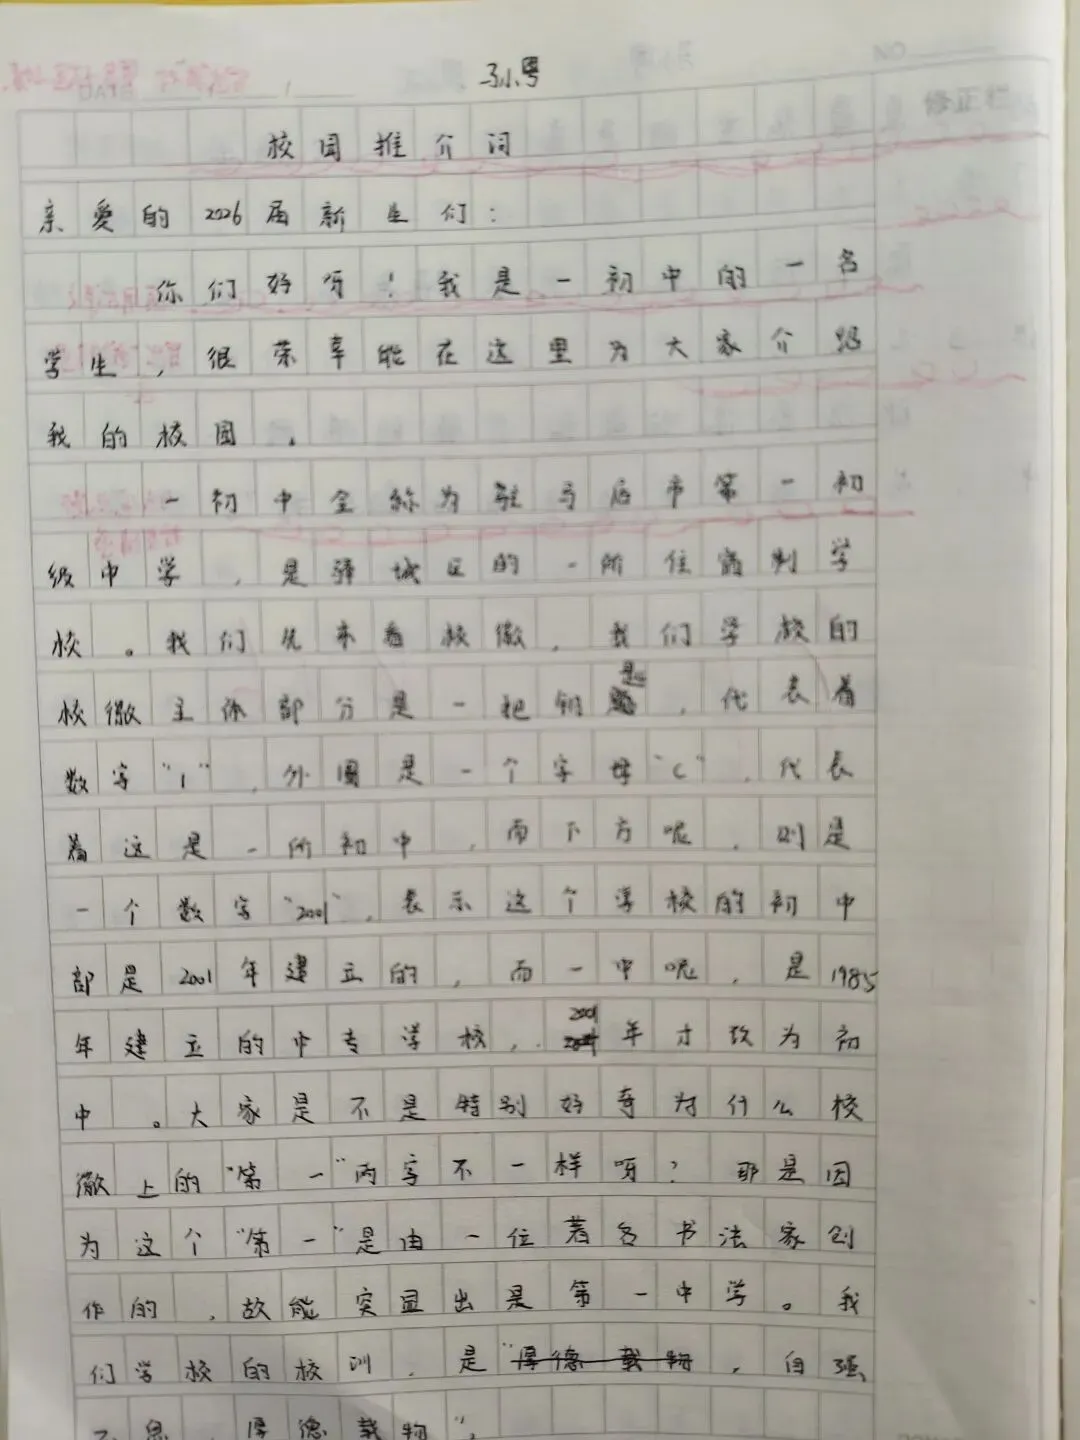 校园推介词
亲爱的2026届新生们：
你们好呀！我是一初中的一名
学生，很荣幸能在这里为大家介绍
我的校园。
一初中全称为驻马店市第一初
级中学，是驿城区的一所住宿制学
校。我们先来看校徽，我们学校的
校徽主体部分是一把钥匙，代表着
数字"1"，外围是一个字母"C"，代表
着这是一所初中，而下方呢，则是
一个数字"2001"，表示这个学校的初中
部是2001年建立的，而一中呢，是1985
年建立的中专学校，2001年才改为初
中。大家是不是特别好奇为什么校
徽上的"第一"两字不一样呀？那是因
为这个"第一"是由一位著名书法家创
作的，故能突显出是第一中学。我
们学校的校训，是"厚德载物，自强
不息，厚德载物"，